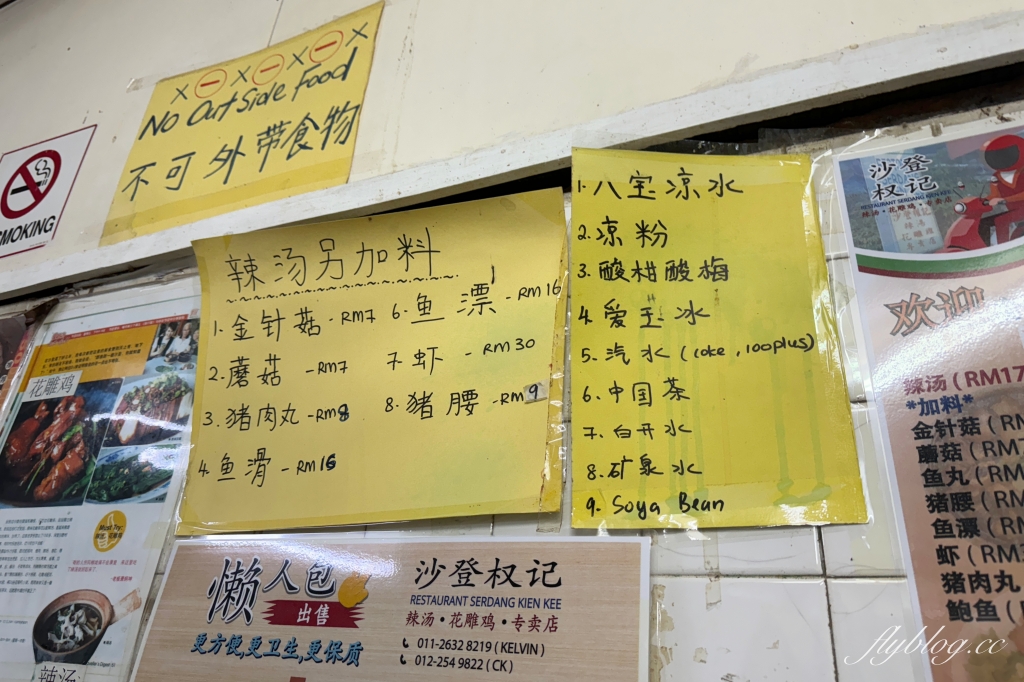 × ⊖ × ⊖ × ⊖ ×
No OutSide Food
不可外带食物
SMOKING
辣汤另加料
1. 金针菇 - RM7
2. 蘑菇 - RM7
3. 猪肉丸 - RM8
4. 鱼滑 - RM16
6. 鱼漂 - RM16
7. 虾 - RM30
8. 猪腰 - RM9
1. 八宝凉水
2. 凉粉
3. 酸柑酸梅
4. 爱玉冰
5. 汽水 (coke, 100plus)
6. 中国茶
7. 白开水
8. 矿泉水
9. Soya Bean
沙登
权记
RESTAURANT SERDANG KIEN KEE
辣汤·花雕鸡·专卖店
欢迎
辣汤 (RM17
*加料*
金针菇 (RM
蘑菇 (RM7
鱼丸 (RM
猪腰 (RM
鱼漂 (RM
虾 (RM
猪肉丸
鲍鱼 (
花雕鸡
辣汤
懒人包
出售
更方便,更卫生,更保质
沙登权记
RESTAURANT SERDANG KIEN KEE
辣汤·花雕鸡·专卖店
011-2632 8219 ( KELVIN )
012-254 9822 ( CK )
flyblog.cc